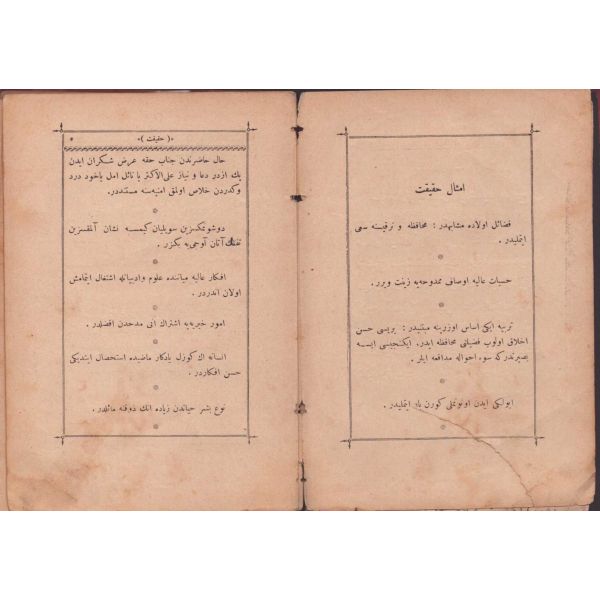 امثال حقیقت
فضائل اولاده مشابهدر : محافظه و ترقیسنه سعی
ایتملیدر .
حسیات عالیه اوصاف ممدوحه‌یه زینت ویرر .
تربیه ایکی اساس اوزرینه مبتنیدر : بریسی حسن
اخلاق اولوب فضیلتی محافظه ایدر . ایکنجیسی ایسه
بصیرتدرکه سوء احواله مدافعه ایلر .
ایولکی ایدن اونوتملی کورن یاد ایتملیدر .
﴿ حقیقت ﴾
٥
حال حاضرندن جناب حقه عرض شکران ایدن
پك ازدر دعا و نیاز علی الاکثر یا نائل امل یاخود درد
و کدردن خلاص اولمق امنیه‌سنه مستنددر .
دوشونمکسزین سویلیان کیمسه نشان آلمقسزین
تفنك آتان آوجی‌یه بکزر .
افکار عالیه میاننده علوم وادبیاتله اشتغال ایتمامش
اولان اندردر .
امور خیریه‌یه اشتراك انی مدحدن افضلدر .
انسانه اك کوزل یادکار ماضیده استحصال ایتدیکی
حسن افکاردر .
نوع بشر حیاتدن زیاده انك ذوقنه مائلدر .